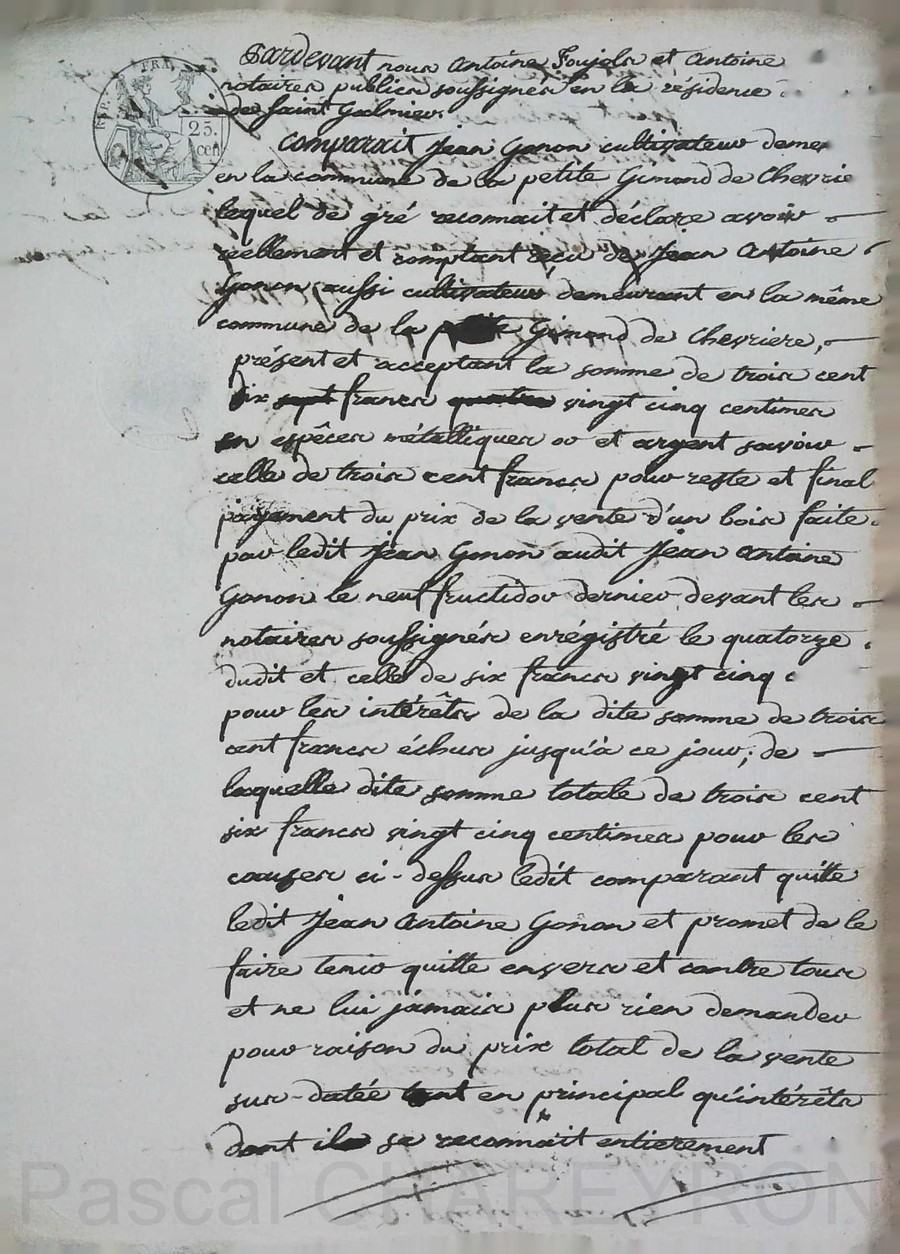 REP. FRA.
25.
cen
Pardevant nous Antoine Poujols et Antoine
notaires publics soussignés en la résidence
de Saint Galmier.
Comparait Jean Gonon cultivateur deme
en la commune de la petite Gimond de Chevrie
lequel de gré reconnait et déclare avoir
réellement et comptant reçu de Jean Antoine
Gonon aussi cultivateur demeurant en la même
commune de la petite Gimond de Chevriere,
présent et acceptant la somme de trois cent
dix sept francs quatre vingt cinq centimes
en espêces métalliques or et argent savoir
celle de trois cent francs pour reste et final
payement du prix de la vente d'un bois faite
par ledit Jean Gonon audit Jean Antoine
Gonon le neuf fructidor dernier devant les
notaires soussignés enrégistré le quatorze
dudit et celle de six francs vingt cinq c
pour les intérêts de la dite somme de trois
cent francs échus jusqu'à ce jour; de
laquelle dite somme totale de trois cent
six francs vingt cinq centimes pour les
causes ci-dessus ledit comparant quitte
ledit Jean Antoine Gonon et promet de le
faire tenir quitte envers et contre tous
et ne lui jamais plus rien demander
pour raison du prix total de la vente
sus-datée tant en principal qu'intérêts
dont il se reconnait entierement
Pascal CHAREYRON